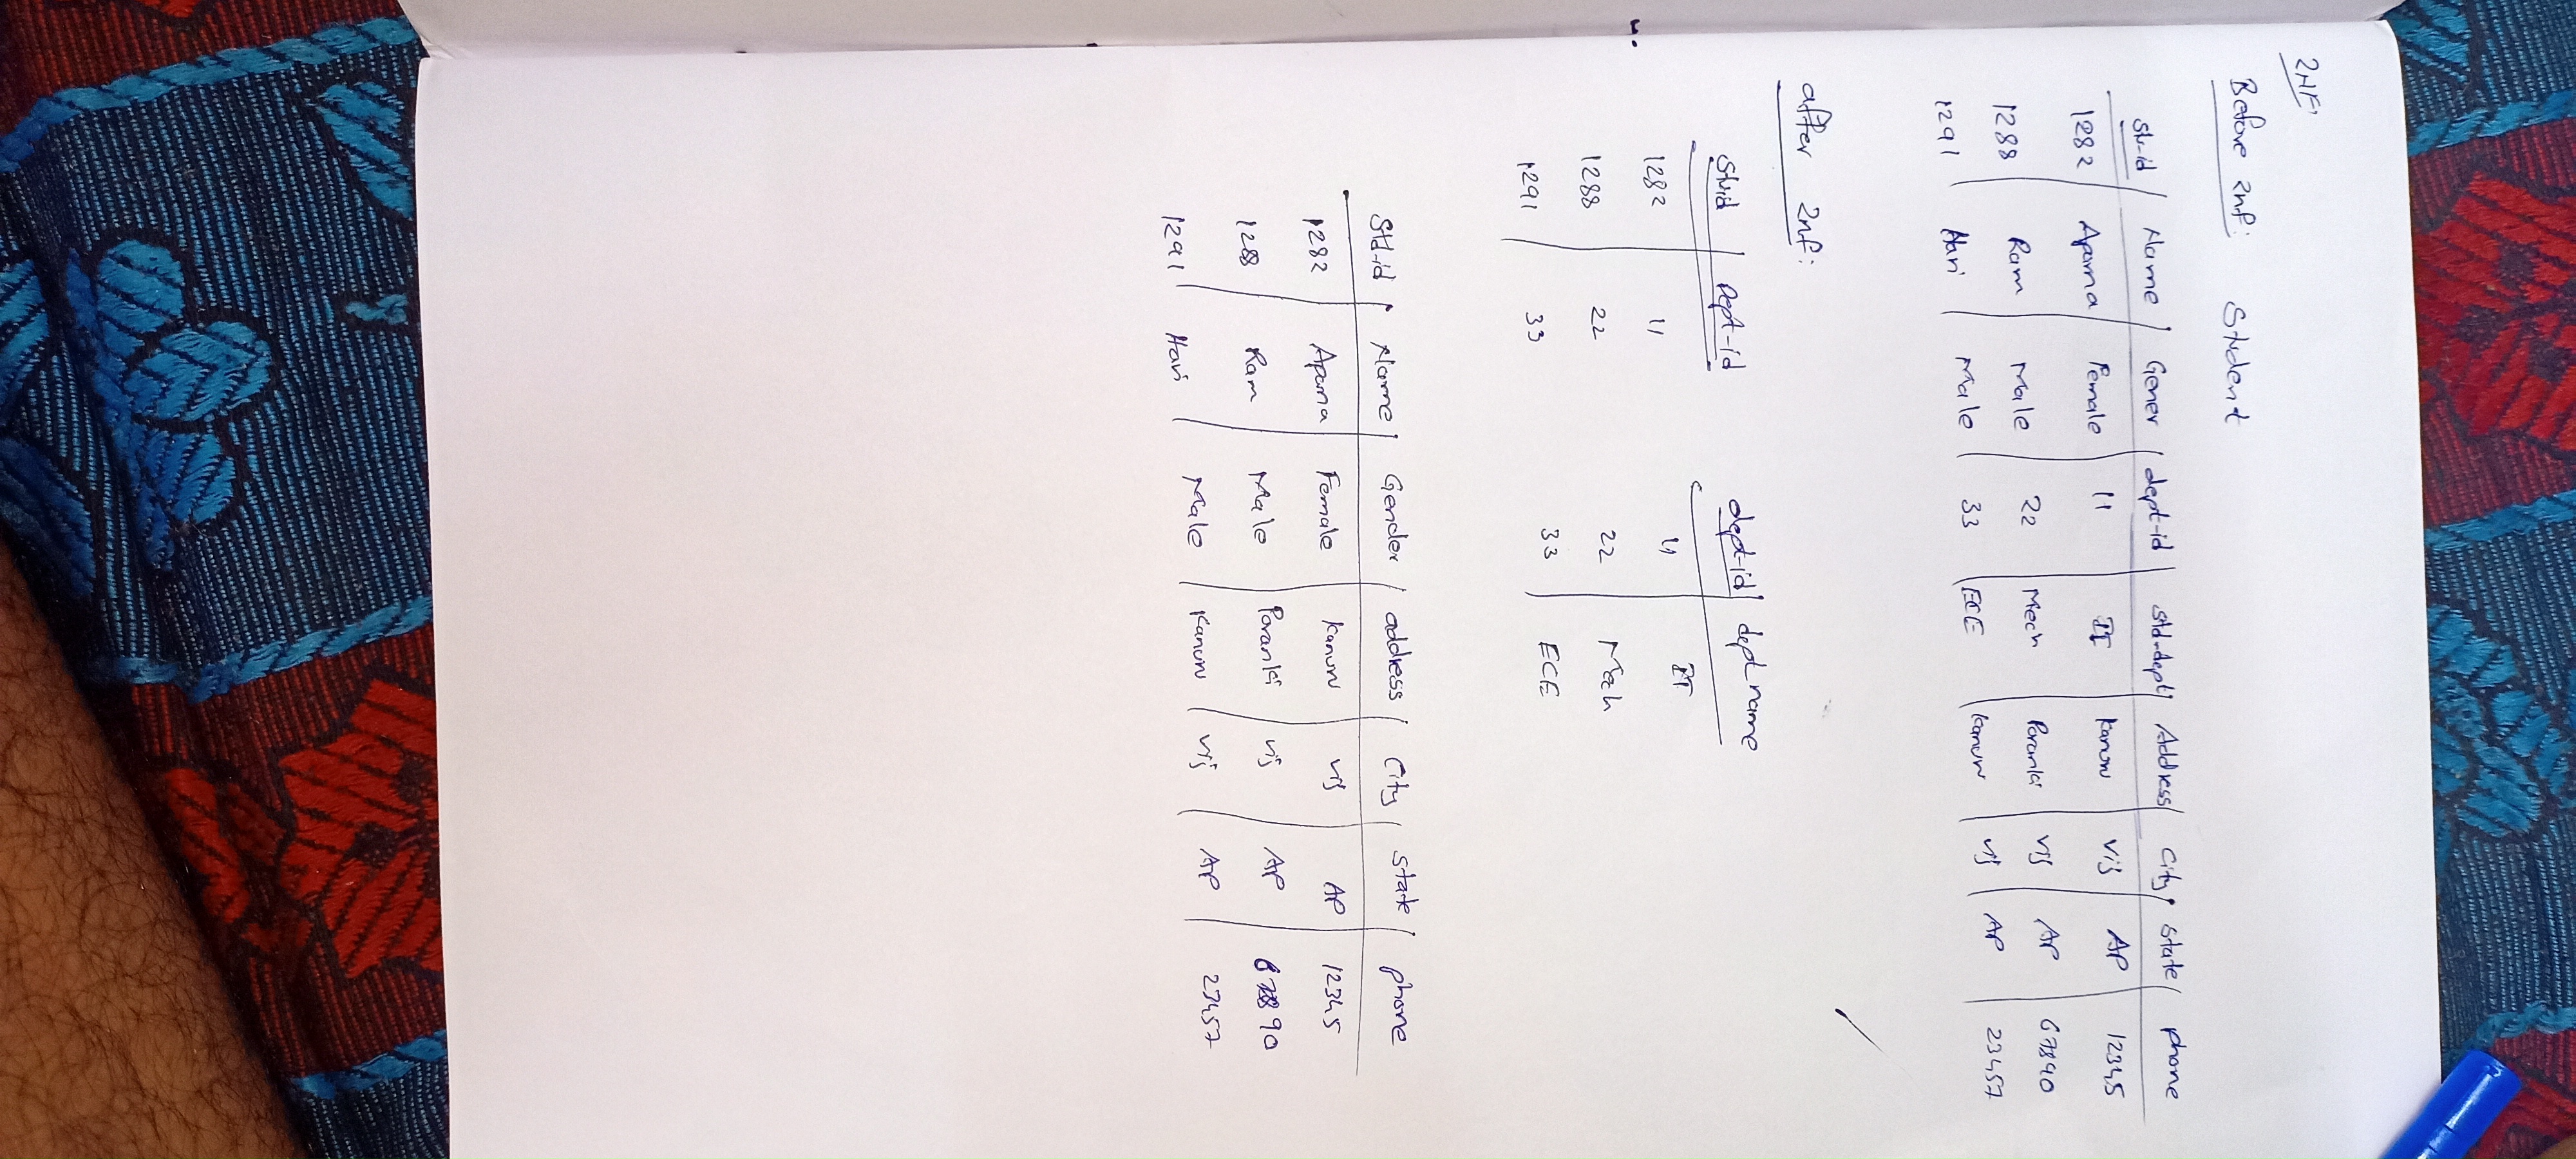 2NF
Before 2nf: Student
Stu-id Name Gener dept-id std-dept Address City State phone
1282 Aparna Female 11 IT Kanuru vij AP 12345
1288 Ram Male 22 Mech Poranki vij AP 67890
1291 Hari Male 33 ECE Kanuru vij AP 23457
after 2nf:
Stuid Dept-id dept-id dept name
1282 11 11 IT
1288 22 22 Mech
1291 33 33 ECE
Std-id Name Gender address City state phone
1282 Aparna Female Kanuru vij AP 12345
1288 Ram Male Poranki vij AP 67890
1291 Hari Male Kanuru vij AP 23457